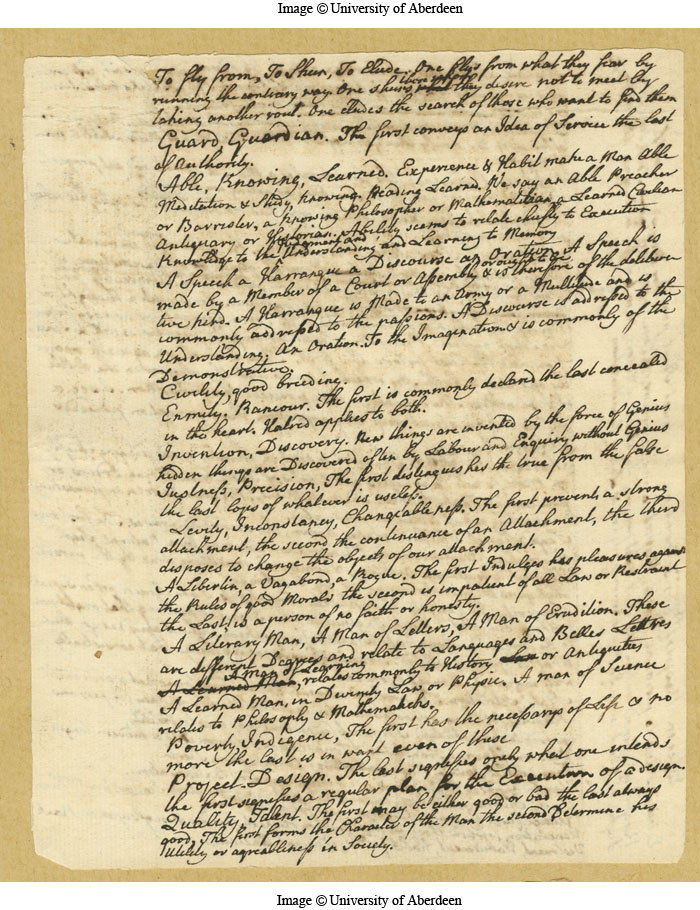 Image © University of Aberdeen
To fly from, To Shun, To Elude. One flys from what they fear by
running the contrary way. One shuns what they desire not to meet by
taking another rout. One eludes the search of those who want to find them
Guard, Guardian. The first conveys an Idea of Service the last
of Authority.
Able, Knowing, Learned. Experience & Habit make a Man Able
Meditation & Study, Knowing. Reading Learned. We say an Able Preacher
or Barrister, a Knowing Philosopher or Mathematitian, a Learned Civilian
Antiquary or Historian. Ability seems to relate chiefly to Execution
Knowledge to the Judgement and Understanding and Learning to Memory
A Speech a Harrangue a Discourse an Oration. A Speech is
made by a Member of a Court or Assembly & is therefore of the delibera
tive kind. A Harrangue is Made to an Army or a Multitude and is
commonly addressed to the passions. A Discourse is addressed to the
Understanding. An Oration. To the Imagination & is commonly of the
Demonstrative.
Civility, good breeding.
Enmity. Rancour. The first is commonly declared the last concealed
in the heart. Hatred applies to both.
Invention, Discovery. New things are invented by the force of Genius
hidden things are Discovered often by Labour and Enquiry without Genius
Justness, Precision, The first distinguishes the true from the false
the last lops of whatever is useless.
Levity, Inconstancy, Changeableness. The first prevents a strong
attachment, the second the continuance of an Attachment, the third
disposes to change the objects of our attachment.
A Libertin, a Vagabond, a Rogue. The first Indulges his pleasures against
the Rules of good Morals the second is impatient of all Law or Restraint
the Last, is a person of no faith or honesty.
A Literary Man, A Man of Letters, A Man of Erudition. These
are different Degrees and relate to Languages and Belles Lettres
A Man of Learning
A Learned Man, relates commonly to History Law or Antiquities
A Learned Man, in Divinity Law, or Physic. A man of Science
relates to Philosophy & Mathematicks.
Poverty, Indigence, The first has the necessarys of Life & no
more the last is in want even of these
Project-Design. The last signifies onely what one intends
the first signifies a regular plan for the Execution of a design.
Quality, Talent. The first may be either good or bad the last always
good. The first forms the Character of the Man the second Determine his
Utility or agreableness in Society.
Image © University of Aberdeen